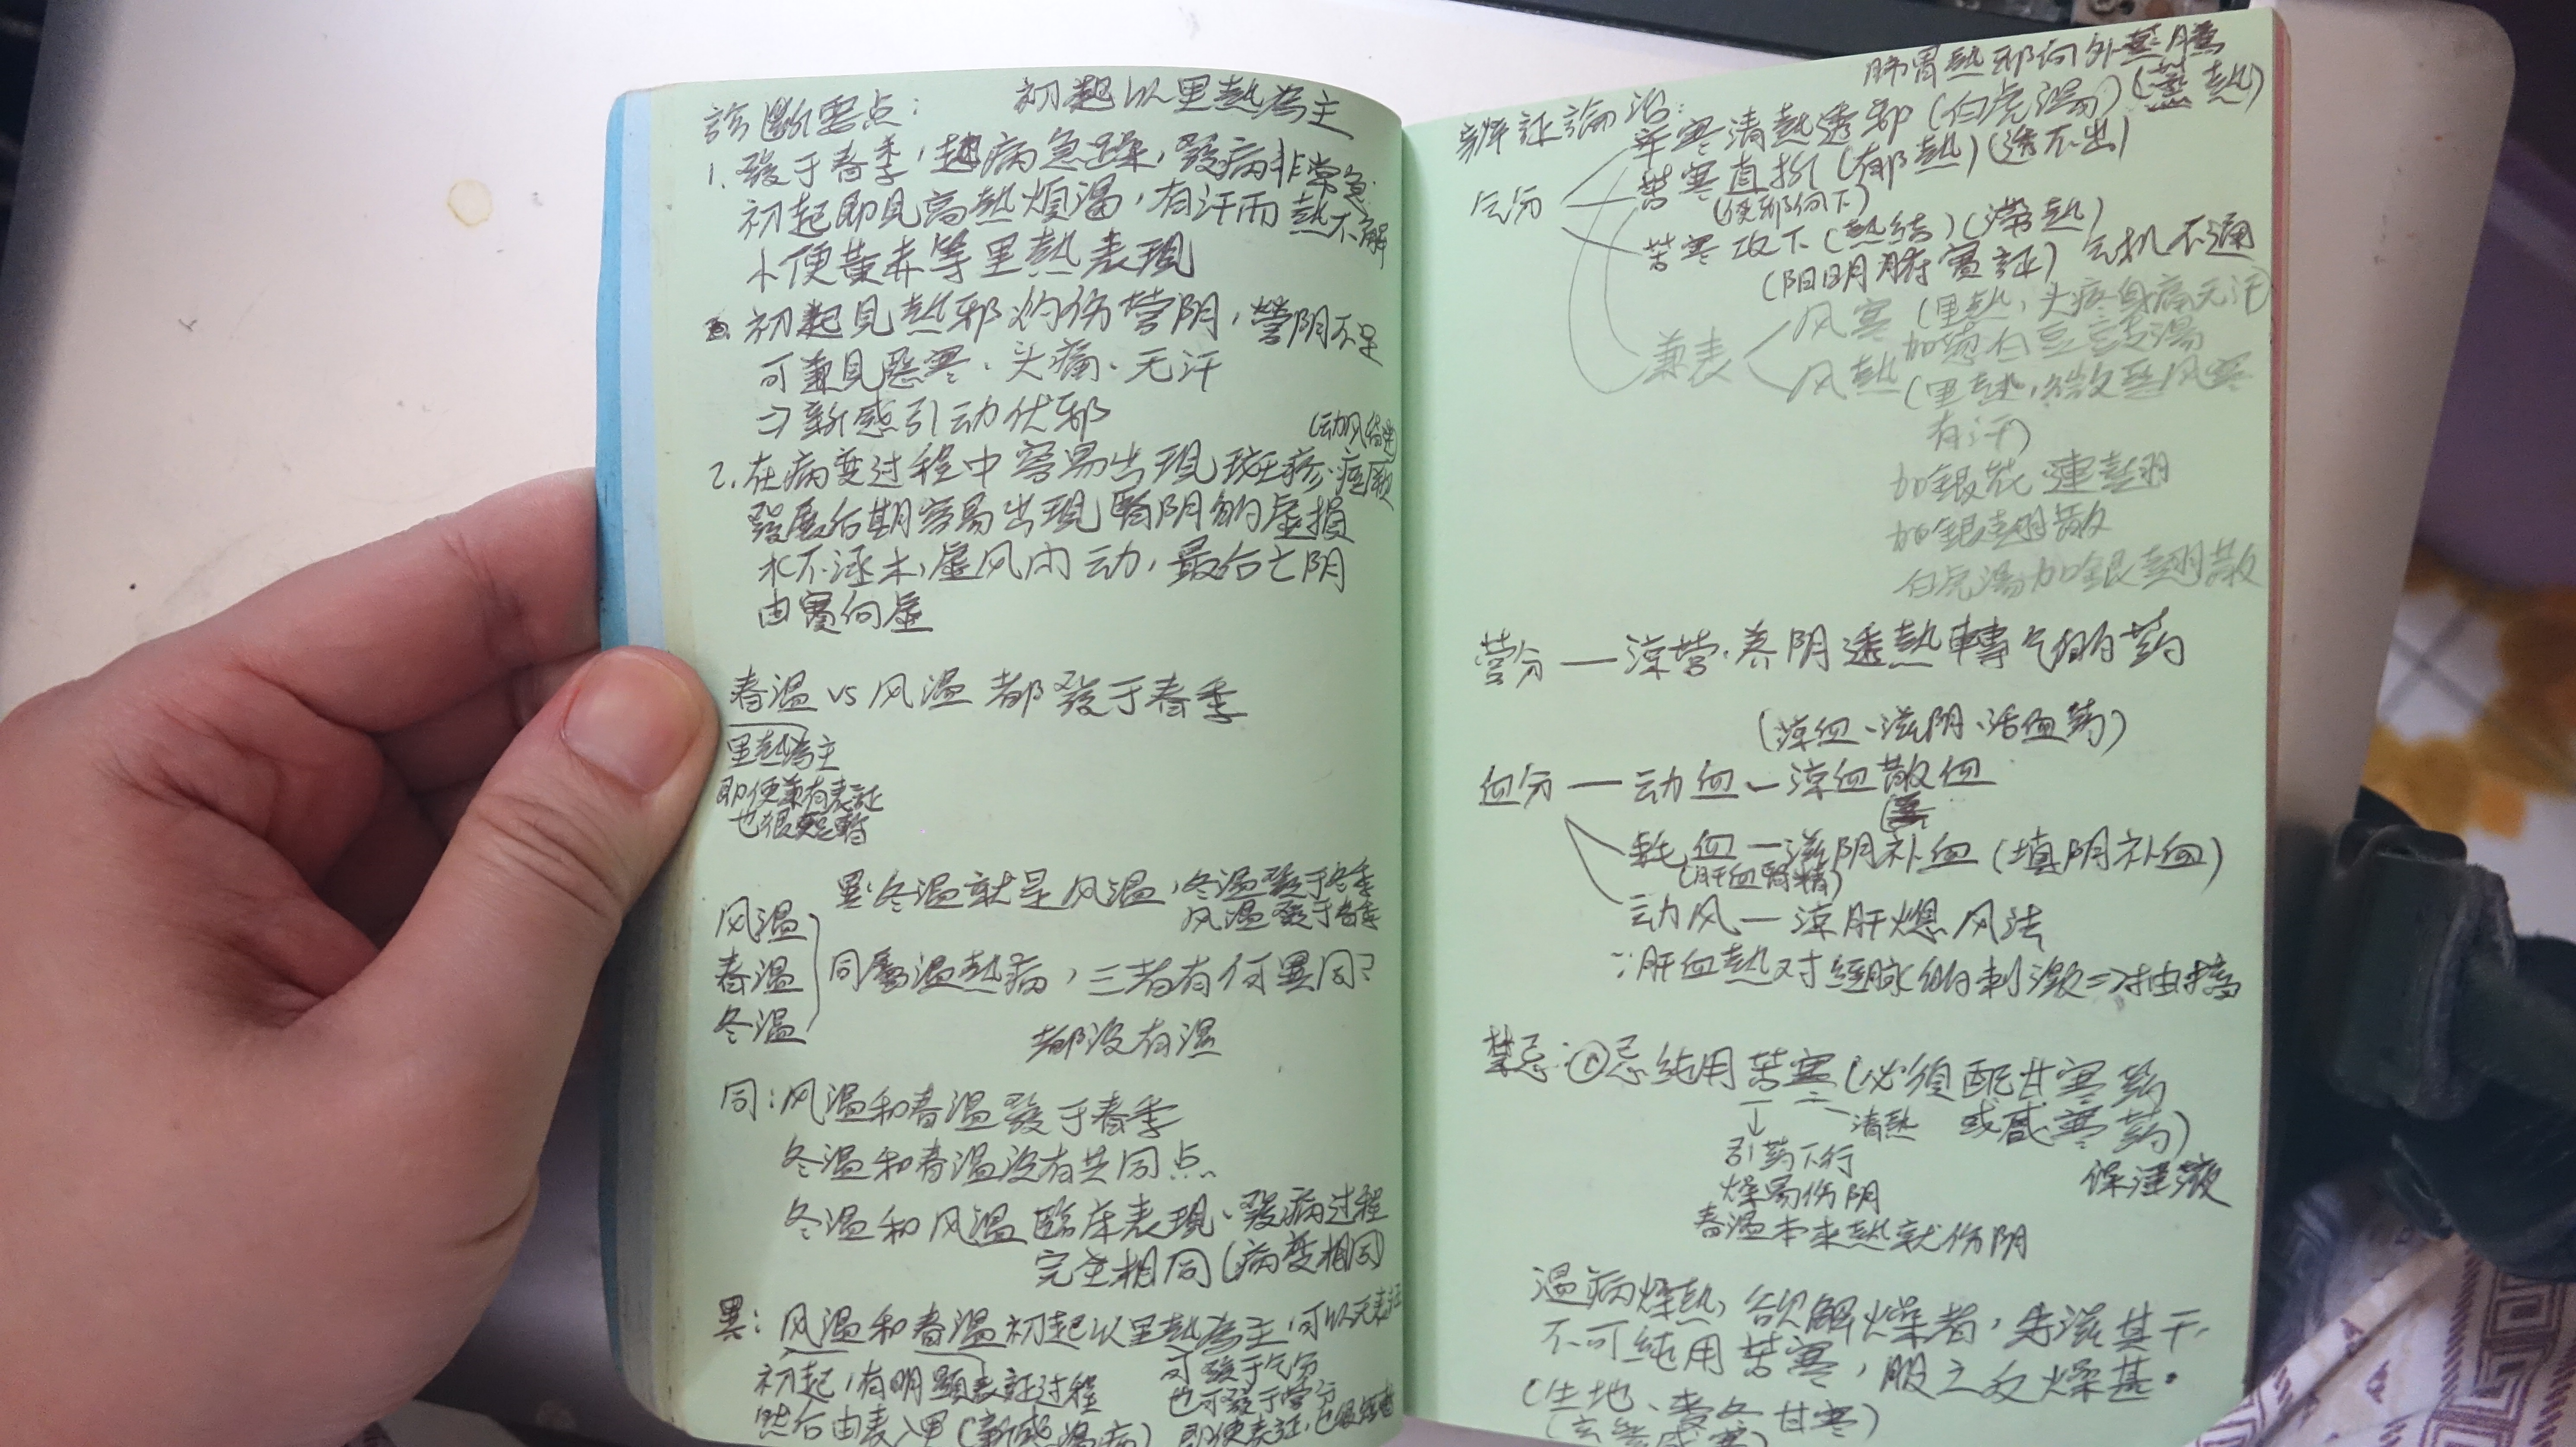 診斷要点： 初起以里熱為主
1. 發于春季，起病急躁，發病非常急
初起即見高熱煩渴，有汗而熱不解
小便黃赤等里熱表現
初起見熱邪灼伤营阴，營阴不足
可兼見惡寒、头痛、无汗
⇒新感引动伏邪
(动风
2. 在病变过程中容易出現斑疹、痙厥
發展后期容易出現腎阴的虛損
水不涵木，虛风内动，最后亡阴
由實向虛
春温 vs 风温 都發于春季
里熱為主
即使兼有表証
也很短暫
異：冬温就是风温，冬温發于冬季
风温發于春季
风温
春温 同屬温熱病，三者有何異同？
冬温
都没有湿
同：风温和春温發于春季
冬温和春温没有共同点
冬温和风温臨床表現、發病过程
完全相同(病变相同)
異：风温和春温初起以里熱為主，可以无表証
初起，有明顯表証过程 可發于气分
也可發于营分
然后由表入里(新感温病) 即使表証，也很短暫
肺胃熱邪向外蒸腾
辨証論治：
辛寒清熱透邪(白虎湯)(蒸熱)
气分 苦寒直折(郁熱)(透不出)
(使邪向下)
苦寒攻下(熱結)(滞熱)
(阳明腑實証) 气机不通
兼表 风寒(里熱，头疼身痛无汗)
加葱白豆豉湯
风熱(里熱，微惡风寒
有汗)
加銀花、連翹
加銀翹散
白虎湯加銀翹散
营分 — 涼营、养阴透熱轉气的药
(涼血、滋阴、活血药)
血分 — 动血 — 涼血散血
耗血 — 滋阴补血(填阴补血)
(肝血腎精)
动风 — 涼肝熄风法
∵肝血熱对經脉的刺激⇒抽搐
禁忌：①忌纯用苦寒(必須配甘寒药
清熱 或咸寒药)
引药下行
保津液
燥易伤阴
春温本来熱就伤阴
温病燥熱，欲解燥者，先滋其干
不可純用苦寒，服之反燥甚。
(生地、麦冬 甘寒)
(玄參咸寒)